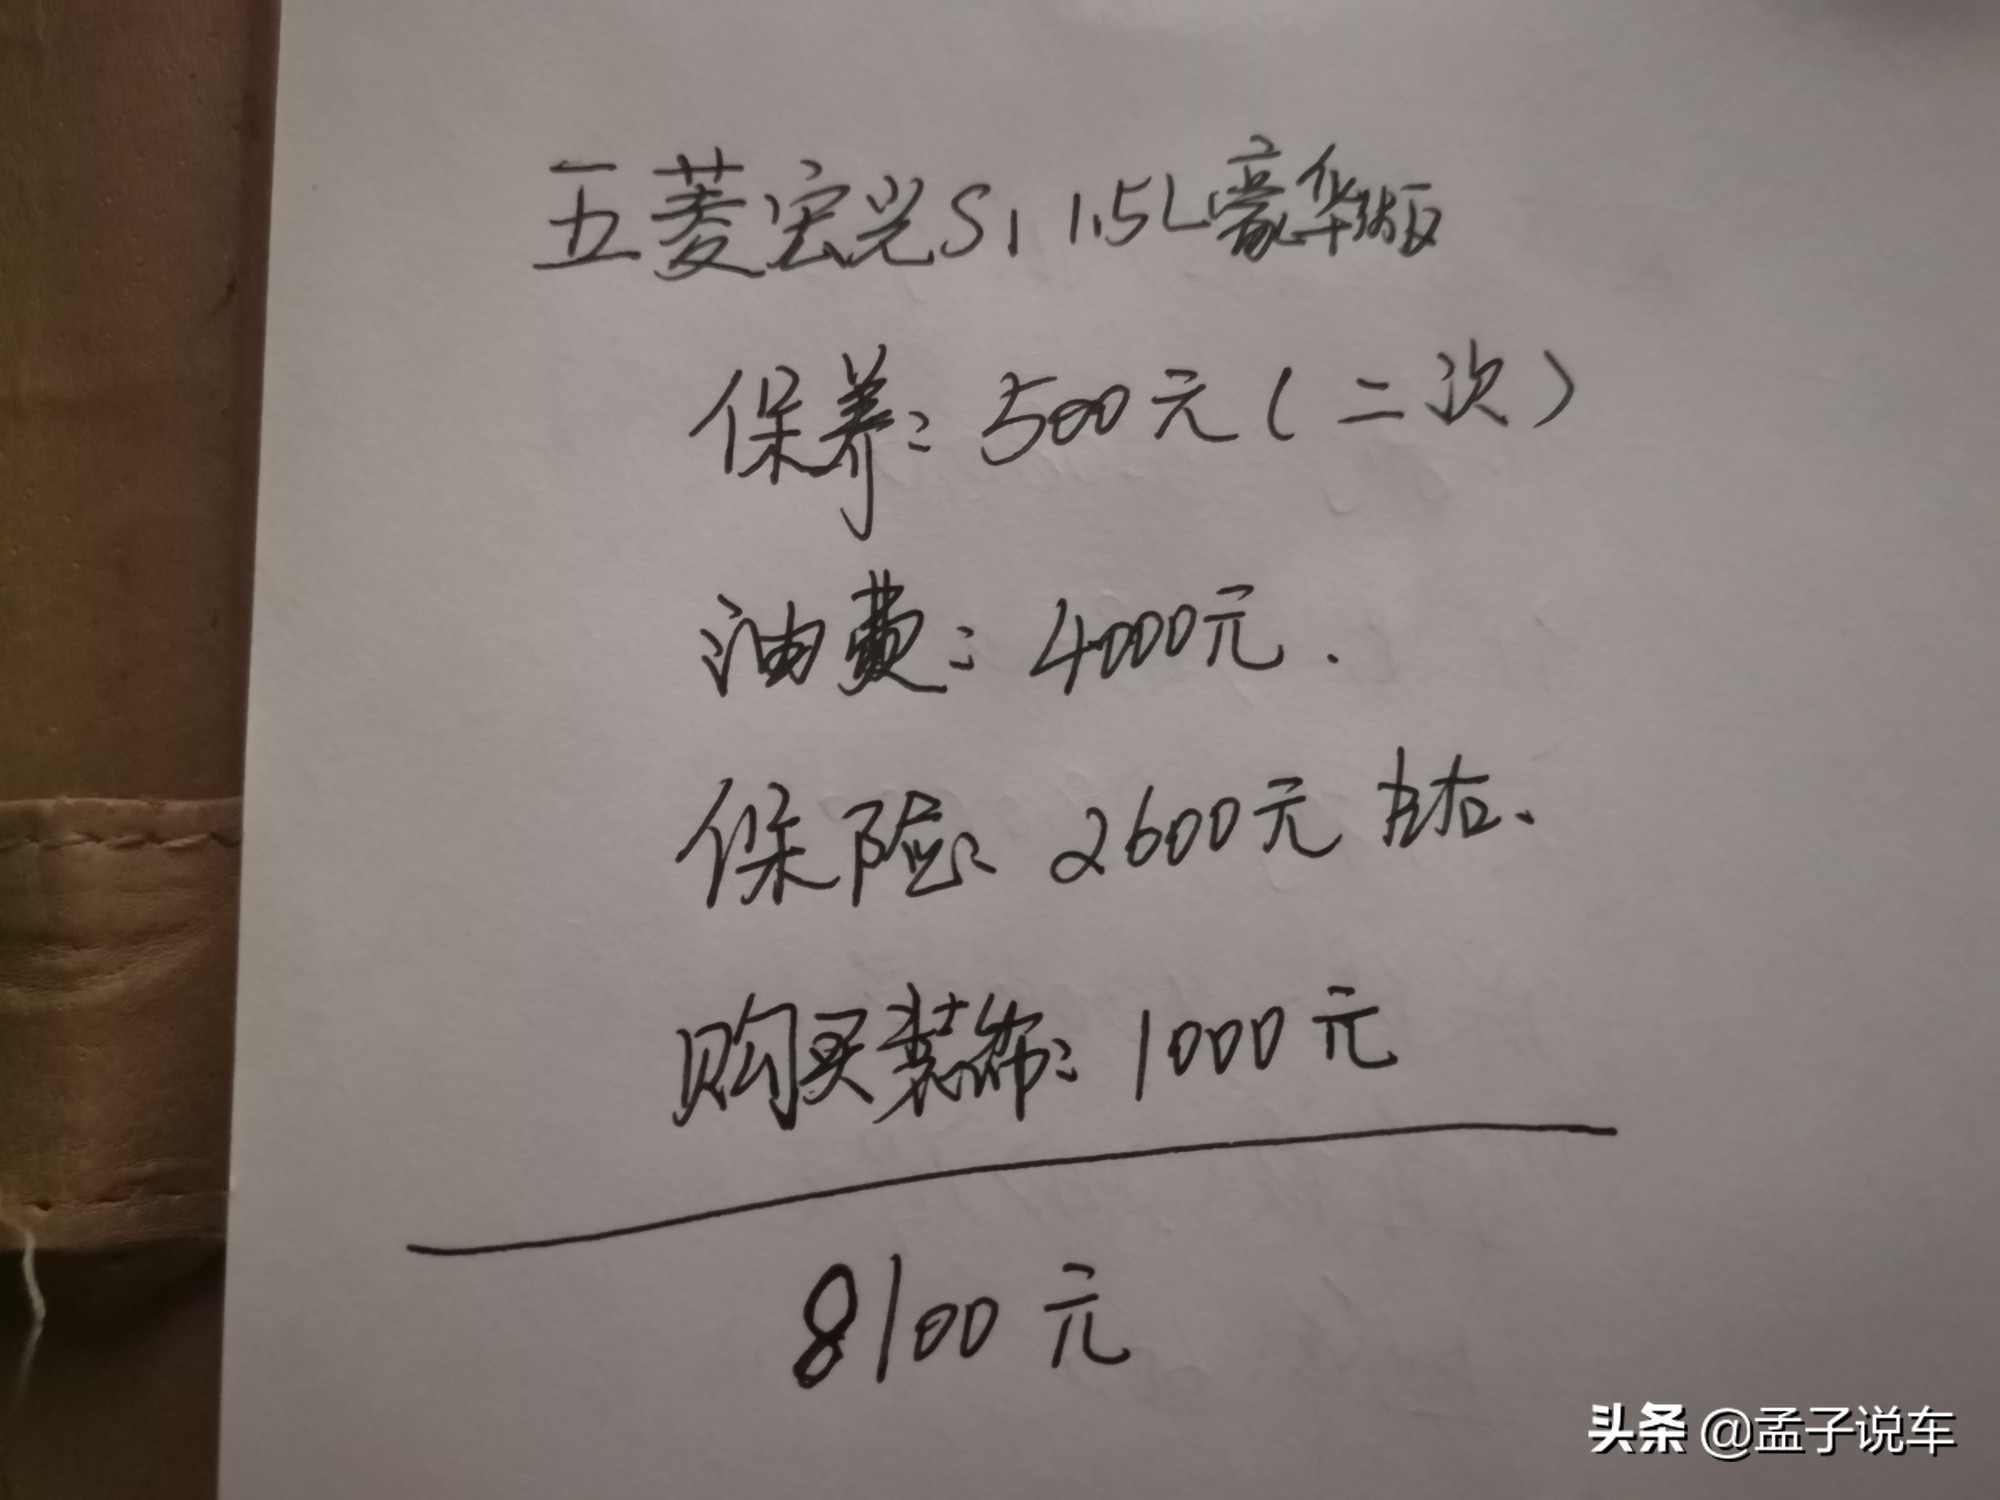 五菱宏光S1 1.5L豪华版
保养:500元(二次)
油费:4000元.
保险:2600元左右、
购买装饰:1000元
8100元
头条 @孟子说车